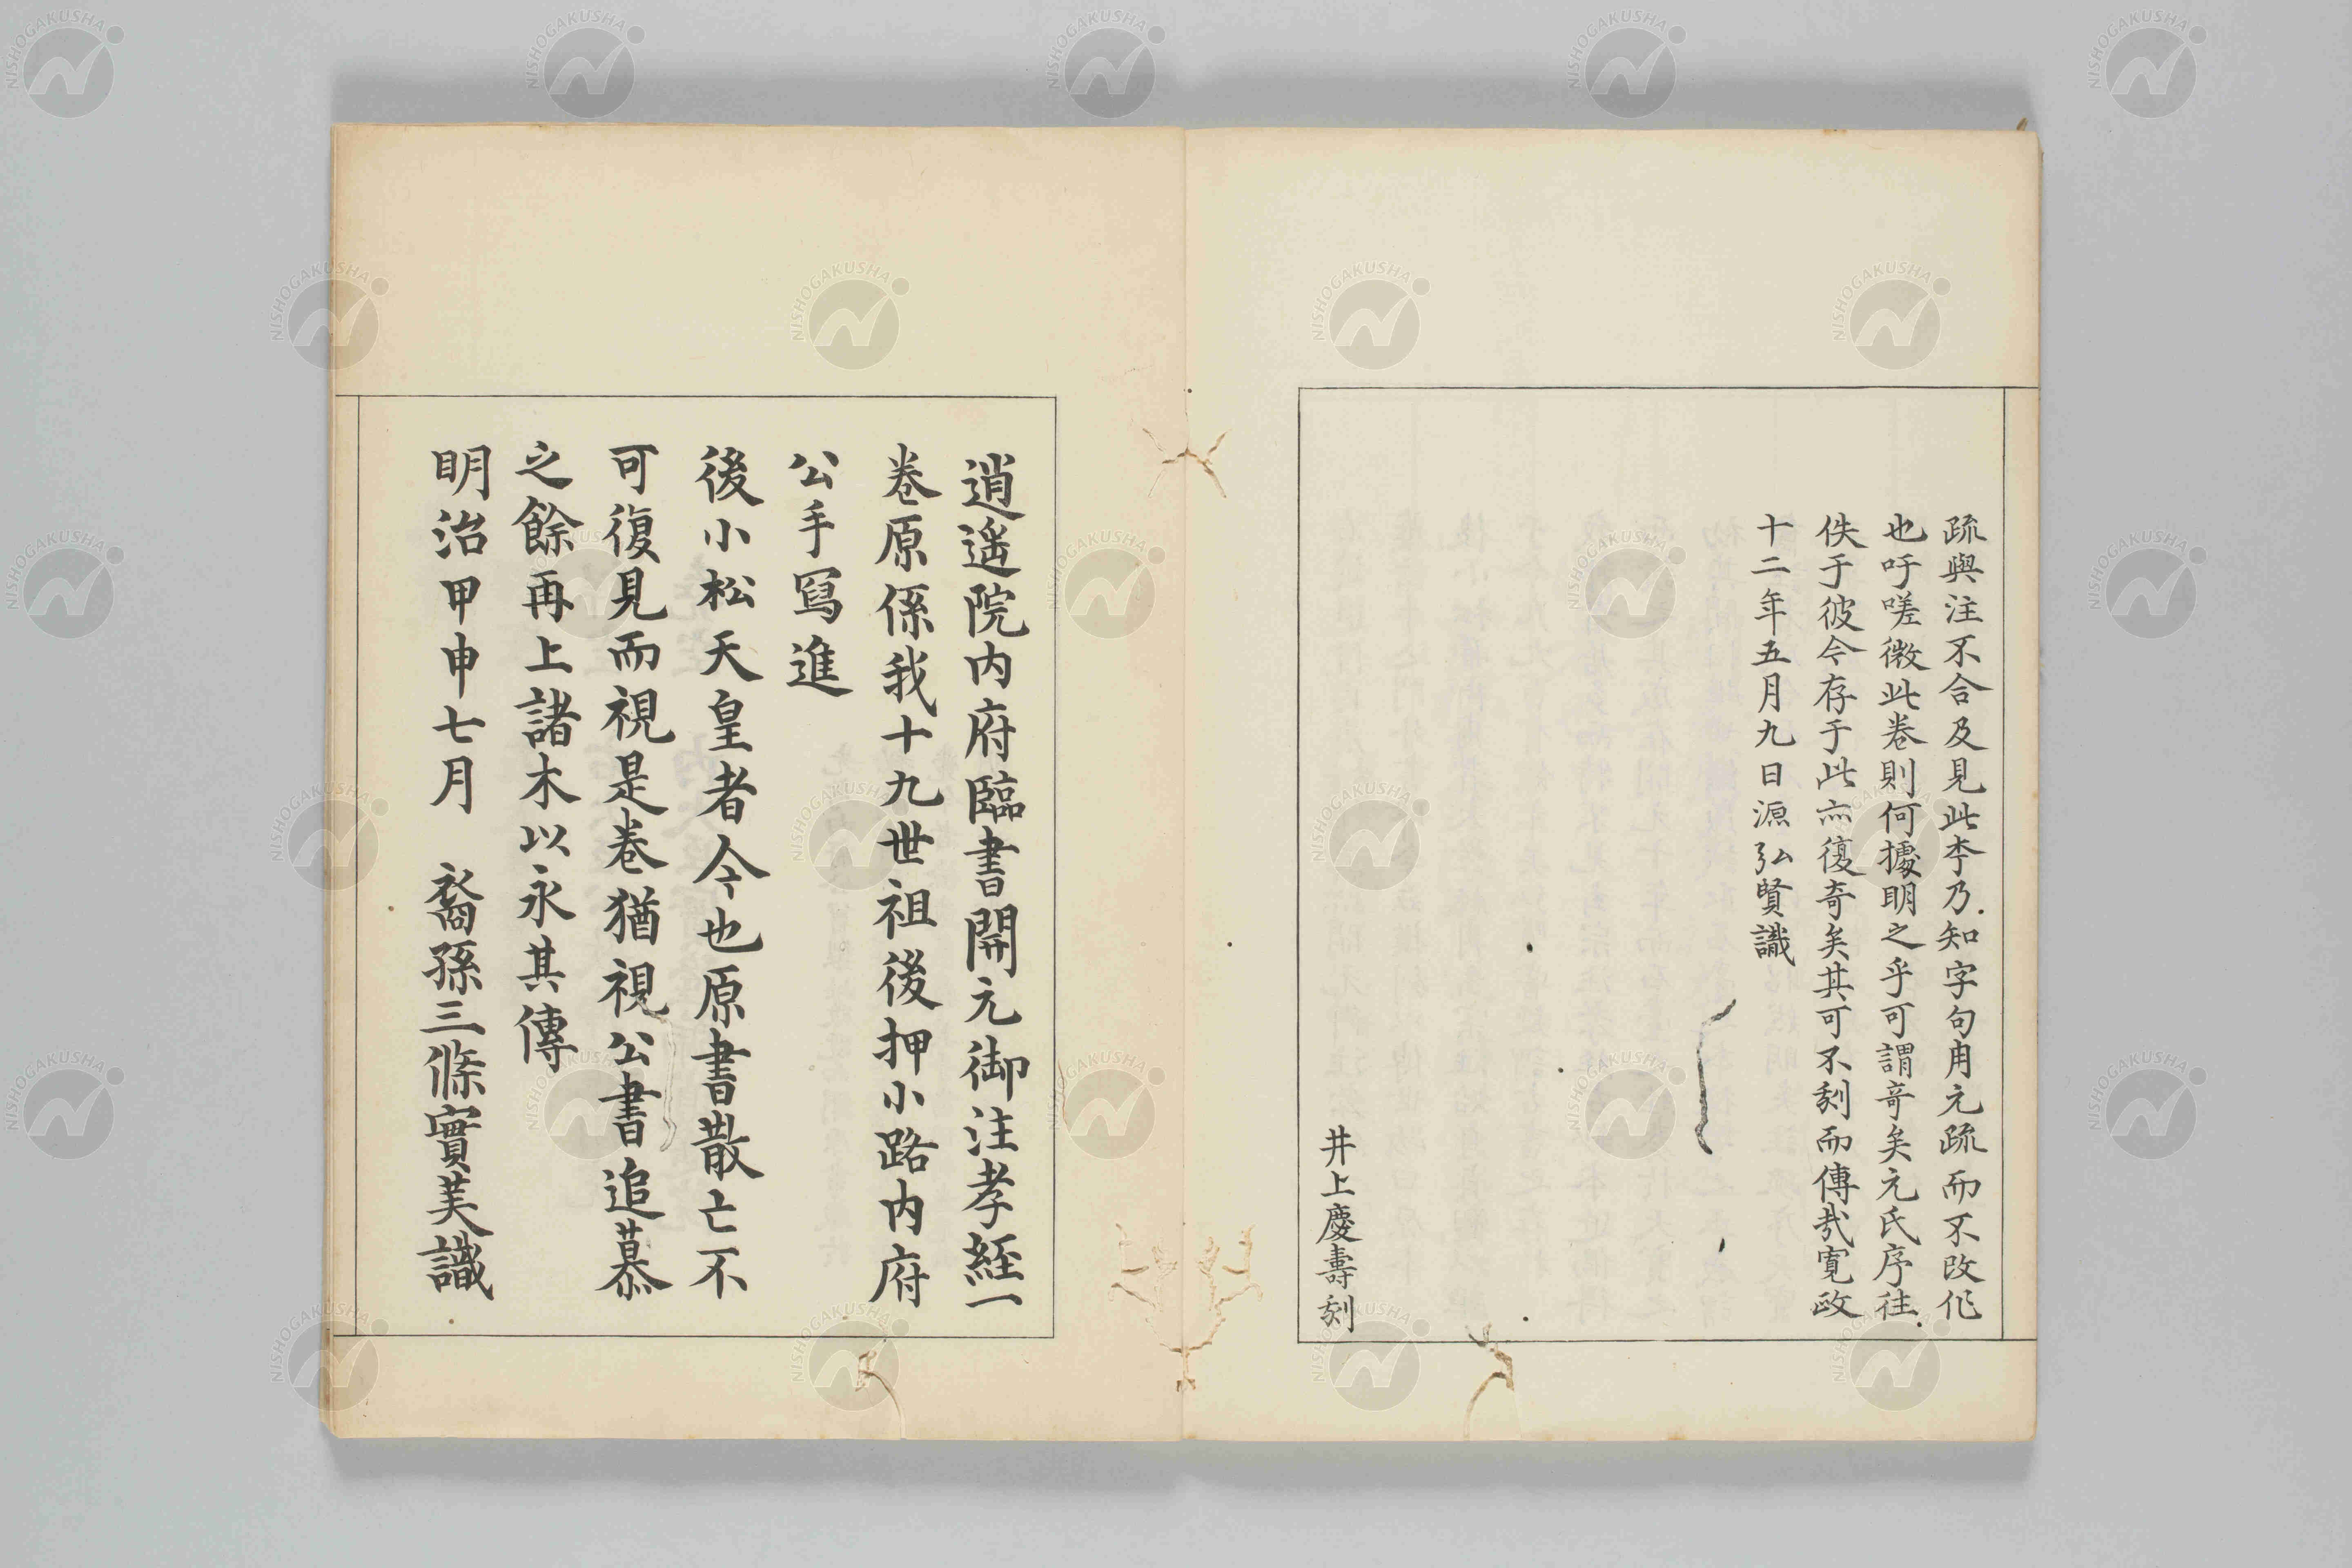 疏與注不合及見此李乃知字句用元疏而不改作
也吁嗟微此卷則何據明之乎可謂奇矣元氏序往
佚于彼今存于此亦復奇矣其可不刻而傳哉寛政
十二年五月九日源弘賢識
井上慶壽刻
逍遙院内府臨書開元御注孝経一
卷原係我十九世祖後押小路内府
公手寫進
後小松天皇者今也原書散亡不
可復見而視是卷猶視公書追慕
之餘再上諸木以永其傳
明治甲申七月 裔孫三條實美識
NISHOGAKUSHA